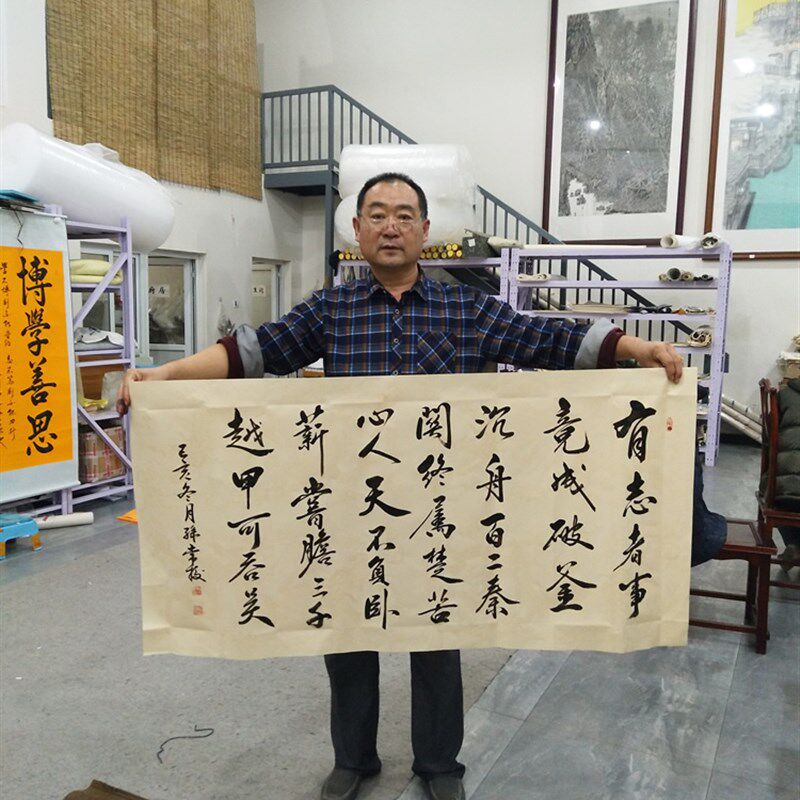 有志者事
竟成破釜
沉舟百二秦
關终属楚苦
心人天不負卧
薪嘗膽三千
越甲可吞吴
己亥冬月孫
博學善思